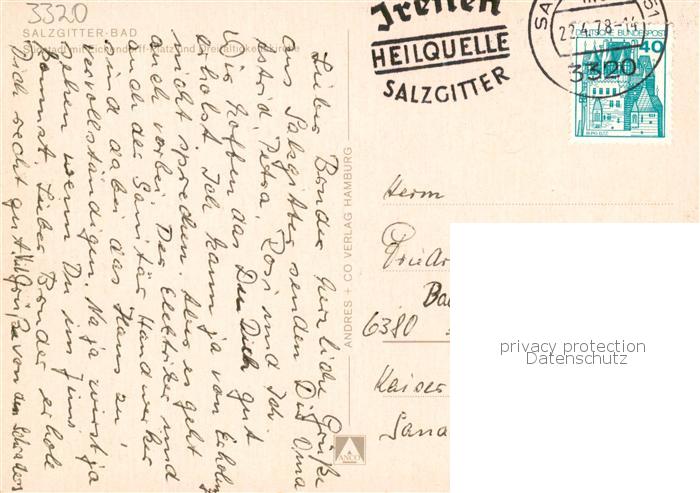 3320
SALZGITTER-BAD
Südstadt mit Eichendorff-Platz und Dreifaltigkeitskirche
Lieber Bruder herzliche Grüße
aus Salzgitter senden Dir Oma
Astrid, Petra, Rosi und Ich.
Wir hoffen das Du Dich gut
erholst. Ich kann ja von Erholen
nicht sprechen. Aber es geht
auch vorbei. Der Elektriker und
auch der Sanitär Handwerker
sind dabei das Haus zu
vervollständigen. Na ja wirst ja
sehen wenn Du im Juni
kommst. Lieber Bruder erhole
Dich recht gut. Viel Grüße von den
ANDRES + CO VERLAG HAMBURG
ANCO
HEILQUELLE
SALZGITTER
22.4.78-14
3320
DEUTSCHE BUNDESPOST
40
BURG ELTZ
Herrn
Bad
6380
Kaiser
Sana
privacy protection
Datenschutz